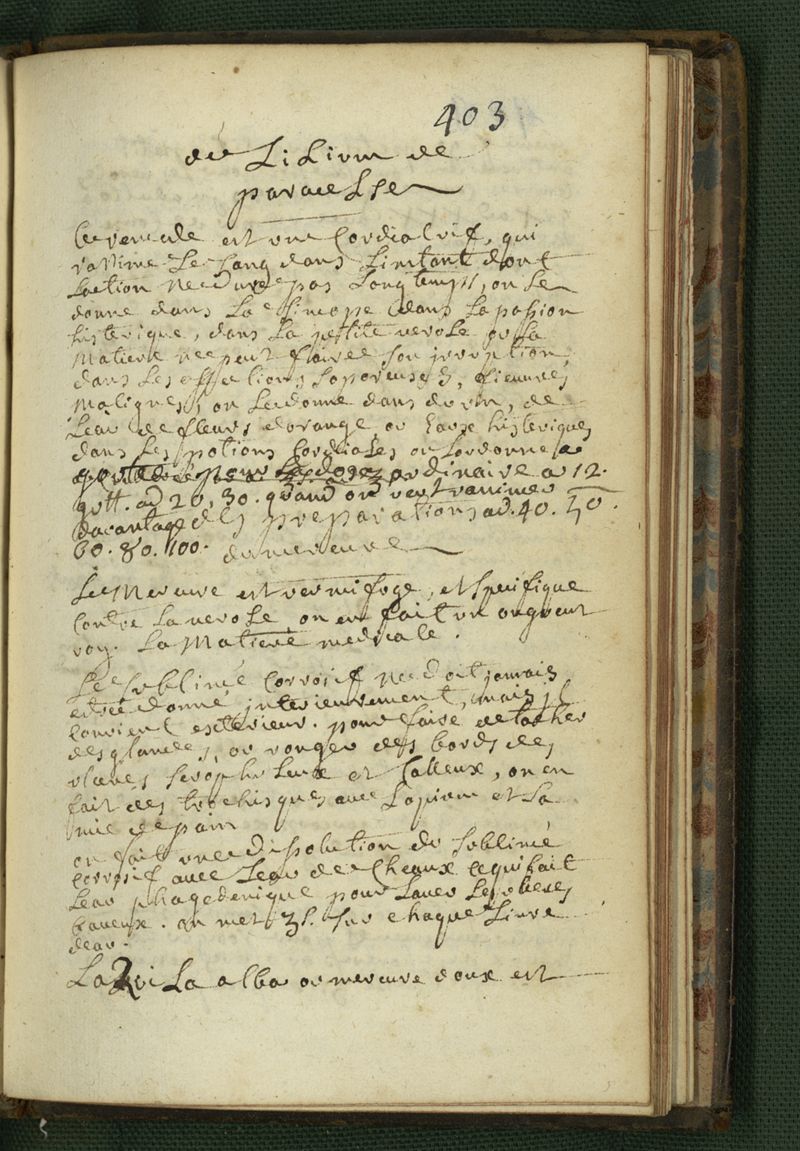 403
du Lilium de
paracelse
Ce remede est un Cordial vif, qui
ranime Le Sang dans Linstant dont
Laction ne dure pas Longtemps, on Le
donne dans La Sincope dans La passion
histerique, dans La petite verole ou La
Matiere ne peut faire son irruption,
dans Les affections soporeuses, fievres
Malignes, on Le donne dans du vin, de
Leau de fleurs dorange ou Eaux histeriques
dans Les potions Cordiales on Lordonne a
pour La dose ordinaire a 12.
gutt. ad 20, 30. quand on veut ranimer
davantage ad. 40. 50.
60. 80. 100.
des preparations
du mercure
Le Mercure est vermifuge, et Specifique
Contre La verole, on en fait un onguent
voy. La Matiere medicale.
Le Sublimé Corrosif ne doit jamais
estre donné interieurement, mais jl
Convient exterieur. pour faire detacher
des glandes, ou ronger des bords des
ulceres Scrophuleux et Calleux, on en
fait des trochisques avec Lopium et La
mie de pain
on fait une dissolution du Sublimé
Corrosif avec Leau de Cheaux ce qui fait
Leau phagedenique pour Laver Les ulceres
baveux. on met ʒs. sur chaque Livre
deau.
La alba ou mercure doux est